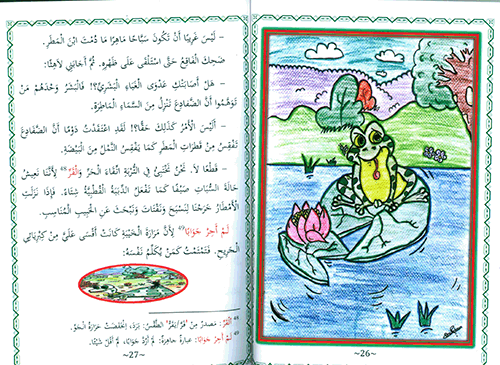 – لَيْسَ غَرِيبًا أَنْ تَكُونَ سَبَّاحًا مَاهِرًا مَا دُمْتَ ابْنَ الْمَطَرِ.
ضَحِكَ الْفَاقِعُ حَتَّى اسْتَلْقَى عَلَى ظَهْرِهِ. ثُمَّ أَجَابَنِي لَاهِثًا:
– هَلْ أَصَابَتْكَ عَدْوَى الْغَبَاءِ الْبَشَرِيِّ؟! فَالْبَشَرُ وَحْدَهُمْ مَنْ
تَوَهَّمُوا أَنَّ الضَّفَادِعَ تَنْزِلُ مِنَ السَّمَاءِ الْمَاطِرَةِ.
– أَلَيْسَ الْأَمْرُ كَذَلِكَ حَقًّا؟! لَقَدِ اعْتَقَدْتُ دَوْمًا أَنَّ الضَّفَادِعَ
تَفْقِسُ مِنْ قَطَرَاتِ الْمَطَرِ كَمَا يَفْقِسُ النَّمْلُ مِنَ الْبَيْضَةِ.
– قَطْعًا لَا. نَحْنُ نَخْتَبِئُ فِي التُّرْبَةِ اتِّقَاءَ الْحَرِّ وَالْقَرِّ⁴⁸ لِأَنَّنَا نَعِيشُ
حَالَةَ السُّبَاتِ صَيْفًا كَمَا تَفْعَلُ الدِّبَبَةُ الْقُطْبِيَّةُ شِتَاءً. فَإِذَا نَزَلَتِ
الْأَمْطَارُ خَرَجْنَا لِنَسْبَحَ وَنَقْتَاتَ وَنَبْحَثَ عَنِ الْحَبِيبِ الْمُنَاسِبِ.
لَمْ أُحِرْ جَوَابًا⁴⁹ لِأَنَّ مَرَارَةَ الْخَيْبَةِ كَانَتْ أَقْسَى عَلَيَّ مِنْ كِبْرِيَائِي
الْجَرِيحِ. فَتَمْتَمْتُ كَمَنْ يُكَلِّمُ نَفْسَهُ:
⁴⁸ الْقَرُّ: مَصْدَرٌ مِنْ "قَرَّ/يَقَرُّ" الطَّقْسُ: بَرَدَ، اِنْخَفَضَتْ حَرَارَةُ الْجَوِّ.
⁴⁹ لَمْ أُحِرْ جَوَابًا: عِبَارَةٌ جَاهِزَةٌ: لَمْ أَرُدَّ جَوَابًا، لَمْ أَقُلْ شَيْئًا.
~27~
~26~